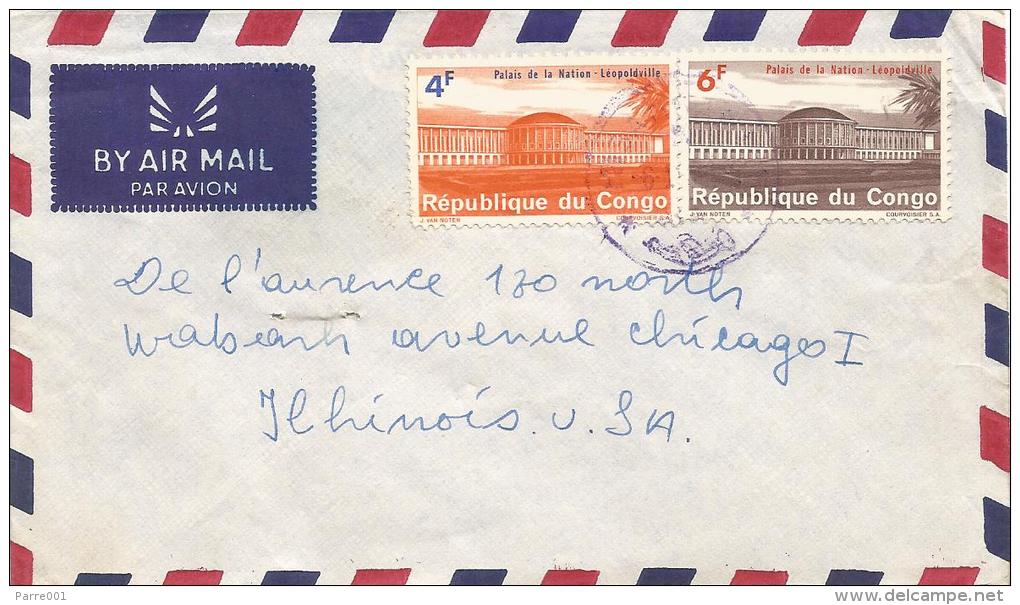 BY AIR MAIL
PAR AVION
4F
Palais de la Nation - Léopoldville
République du Congo
J. VAN NOTEN
COURVOISIER S.A.
6F
Palais de la Nation - Léopoldville
République du Congo
J. VAN NOTEN
COURVOISIER S.A.
De l'aurence 130 north
wabash avenue Chicago I
Illinois. U.S.A.
Parre001
delcampe.net